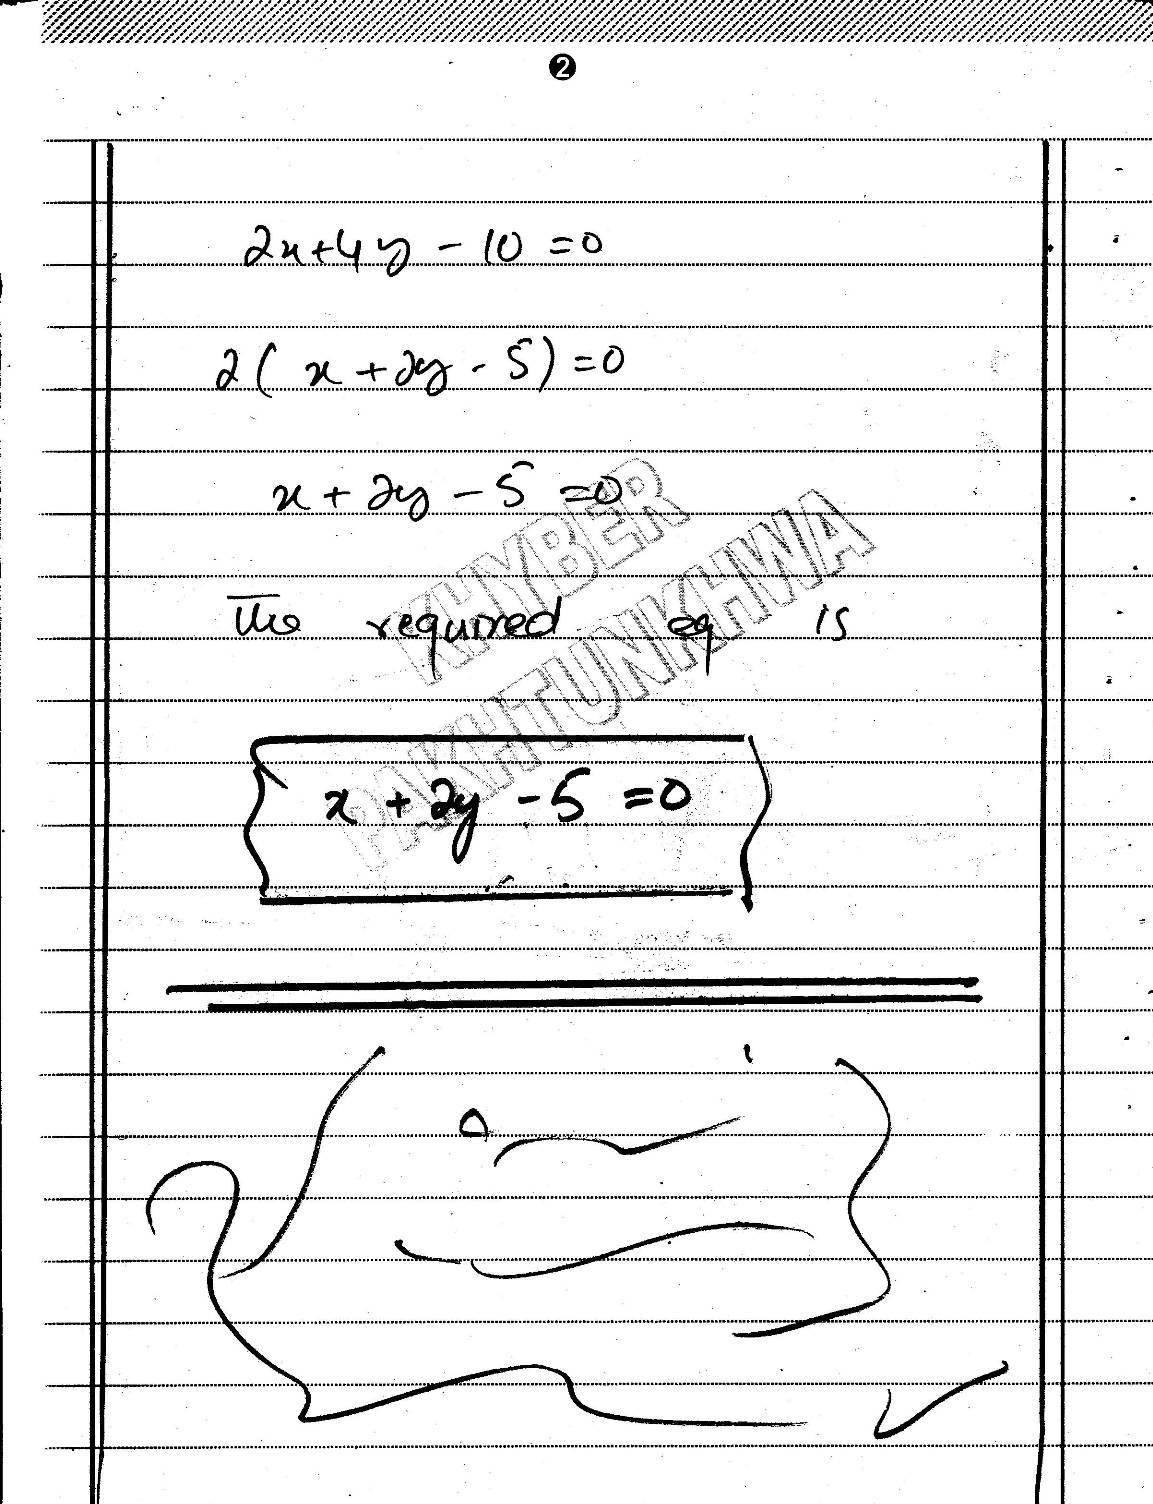 2
2x+4y - 10 = 0
2( x + 2y - 5) = 0
x + 2y - 5 = 0
The required eq is
x + 2y - 5 = 0
KHYBER
PAKHTUNKHWA